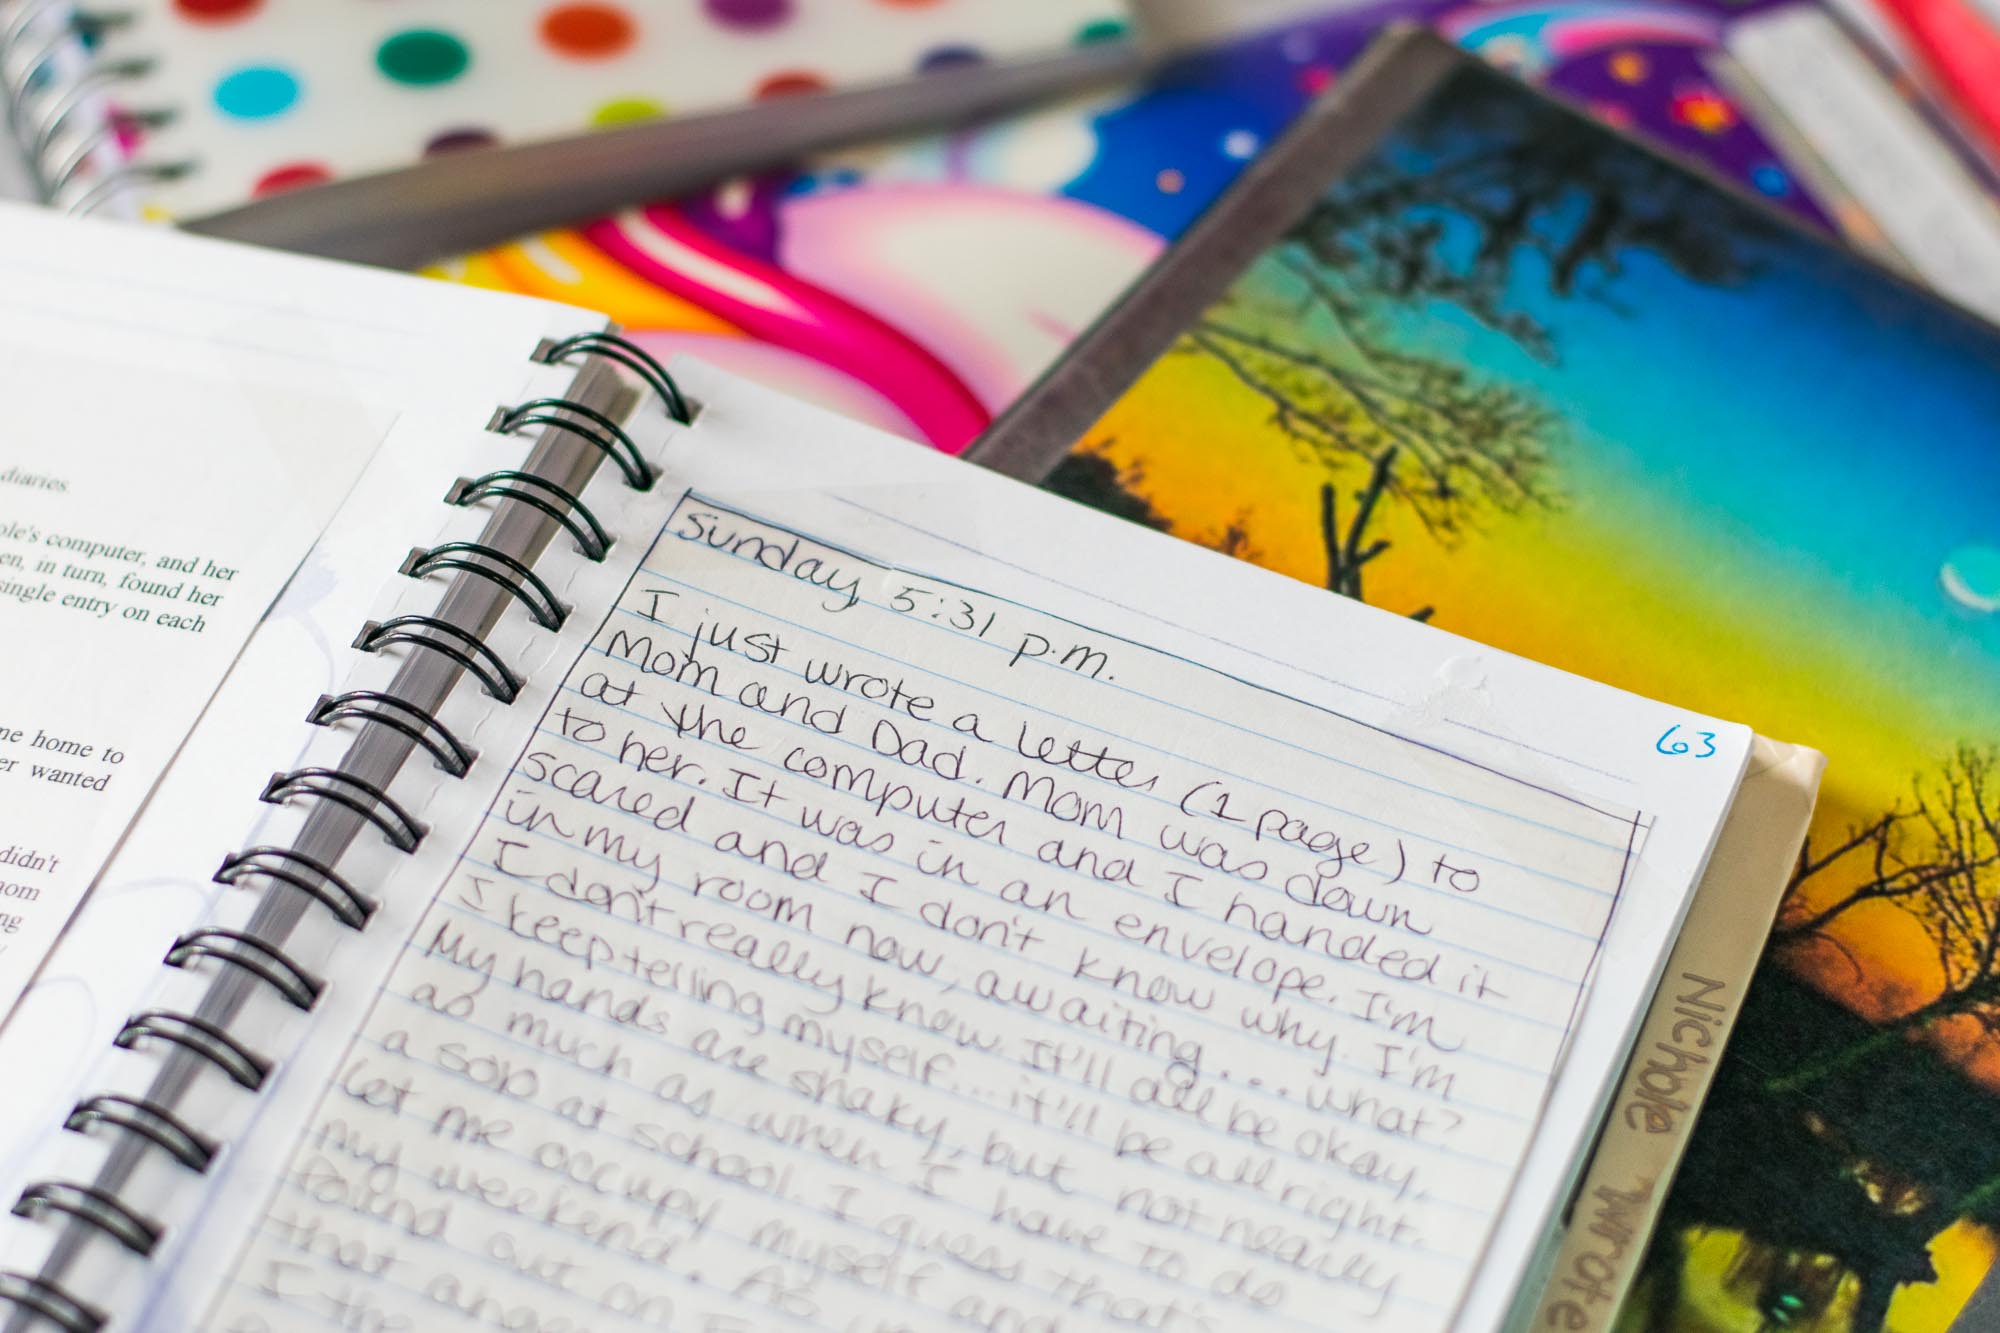 diaries
ole's computer, and her
en, in turn, found her
single entry on each
ne home to
er wanted
didn't
nom
ng
Sunday, 5:31 p.m.
I just wrote a letter (1 page) to
Mom and Dad. Mom was down
at the computer and I handed it
to her. It was in an envelope. I'm
scared and I don't know why. I'm
in my room now, awaiting... what?
I don't really know. It'll all be okay.
I keep telling myself... it'll be all right.
My hands are shaky, but not nearly
as much as when I have to do
a sob at school. I guess that's
Let me occupy myself and
my weekend. As
out on
that
I the
63
Nichole wrote